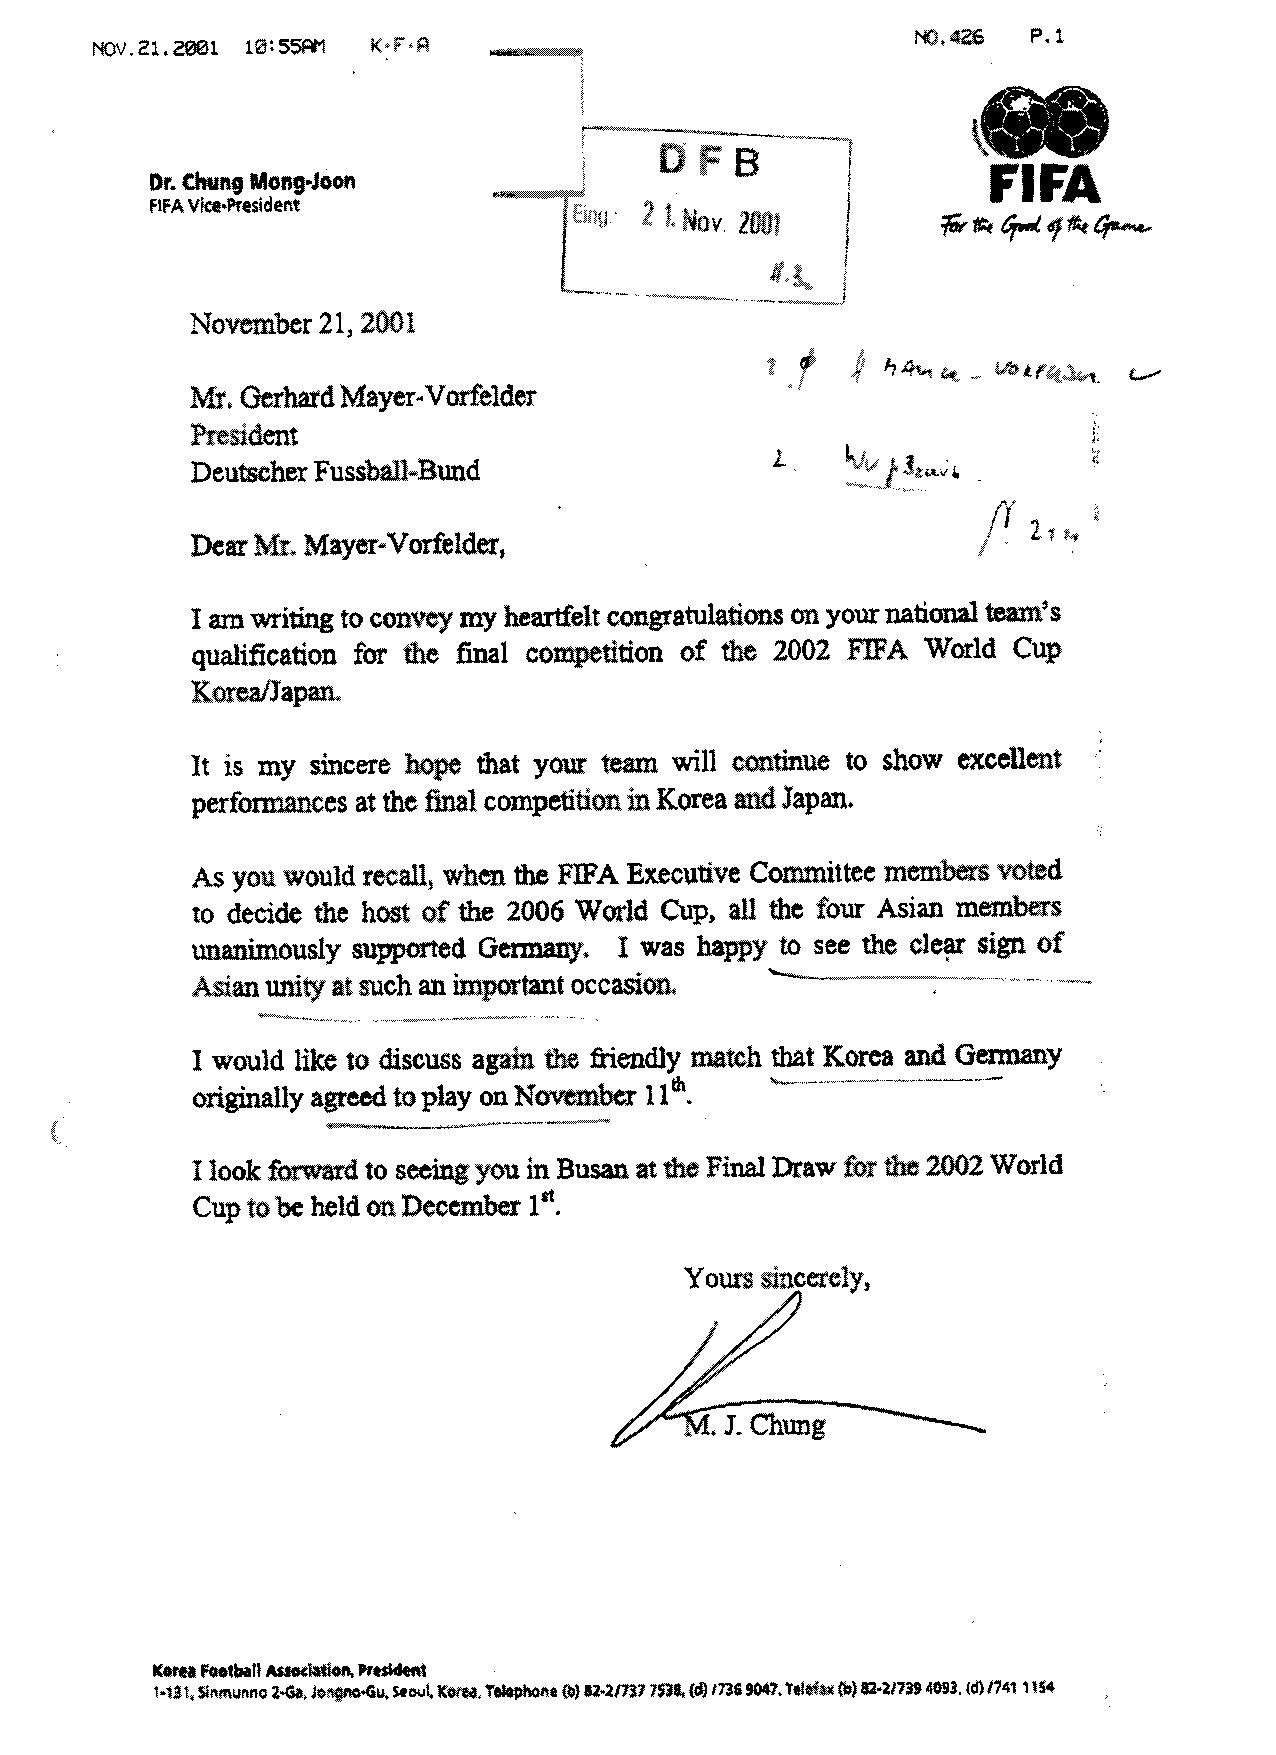 NOV.21.2001 10:55AM K·F·A NO.426 P.1
DFB
Eing.: 21. Nov. 2001
FIFA
For the Good of the Game
Dr. Chung Mong-Joon
FIFA Vice-President
November 21, 2001
Mr. Gerhard Mayer-Vorfelder
President
Deutscher Fussball-Bund
2.
Dear Mr. Mayer-Vorfelder,
I am writing to convey my heartfelt congratulations on your national team's
qualification for the final competition of the 2002 FIFA World Cup
Korea/Japan.
It is my sincere hope that your team will continue to show excellent
performances at the final competition in Korea and Japan.
As you would recall, when the FIFA Executive Committee members voted
to decide the host of the 2006 World Cup, all the four Asian members
unanimously supported Germany. I was happy to see the clear sign of
Asian unity at such an important occasion.
I would like to discuss again the friendly match that Korea and Germany
originally agreed to play on November 11th.
I look forward to seeing you in Busan at the Final Draw for the 2002 World
Cup to be held on December 1st.
Yours sincerely,
M. J. Chung
Korea Football Association, President
1-131, Sinmunno 2-Ga, Jongno-Gu, Seoul, Korea. Telephone (b) 82-2/737 7538, (d) /736 9047. Telefax (b) 82-2/739 4093, (d) /741 1154